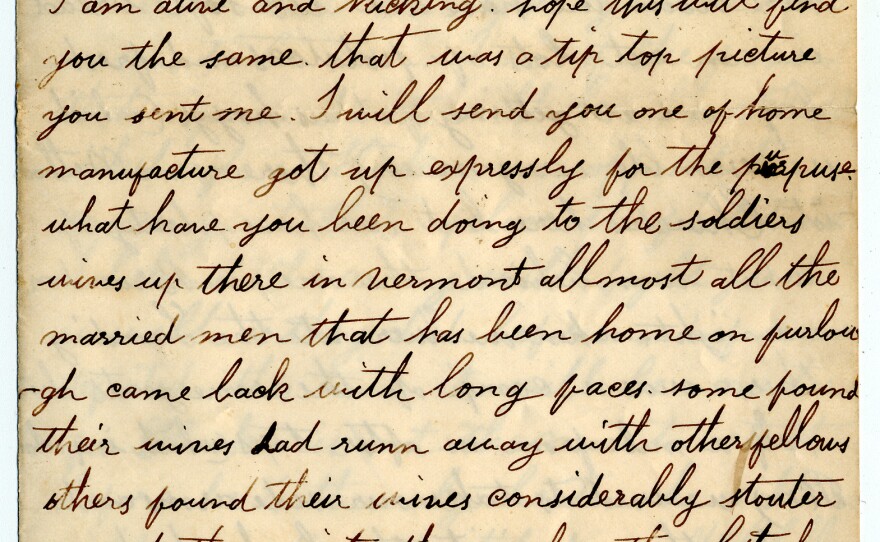 I am alive and kicking. hope this will find
you the same. that was a tip top picture
you sent me. I will send you one of home
manufacture got up expressly for the purpuse.
what have you been doing to the soldiers
wives up there in vermont allmost all the
married men that has been home on furlou
-gh came back with long faces. some found
their wives had runn away with other fellows
others found their wives considerably stouter